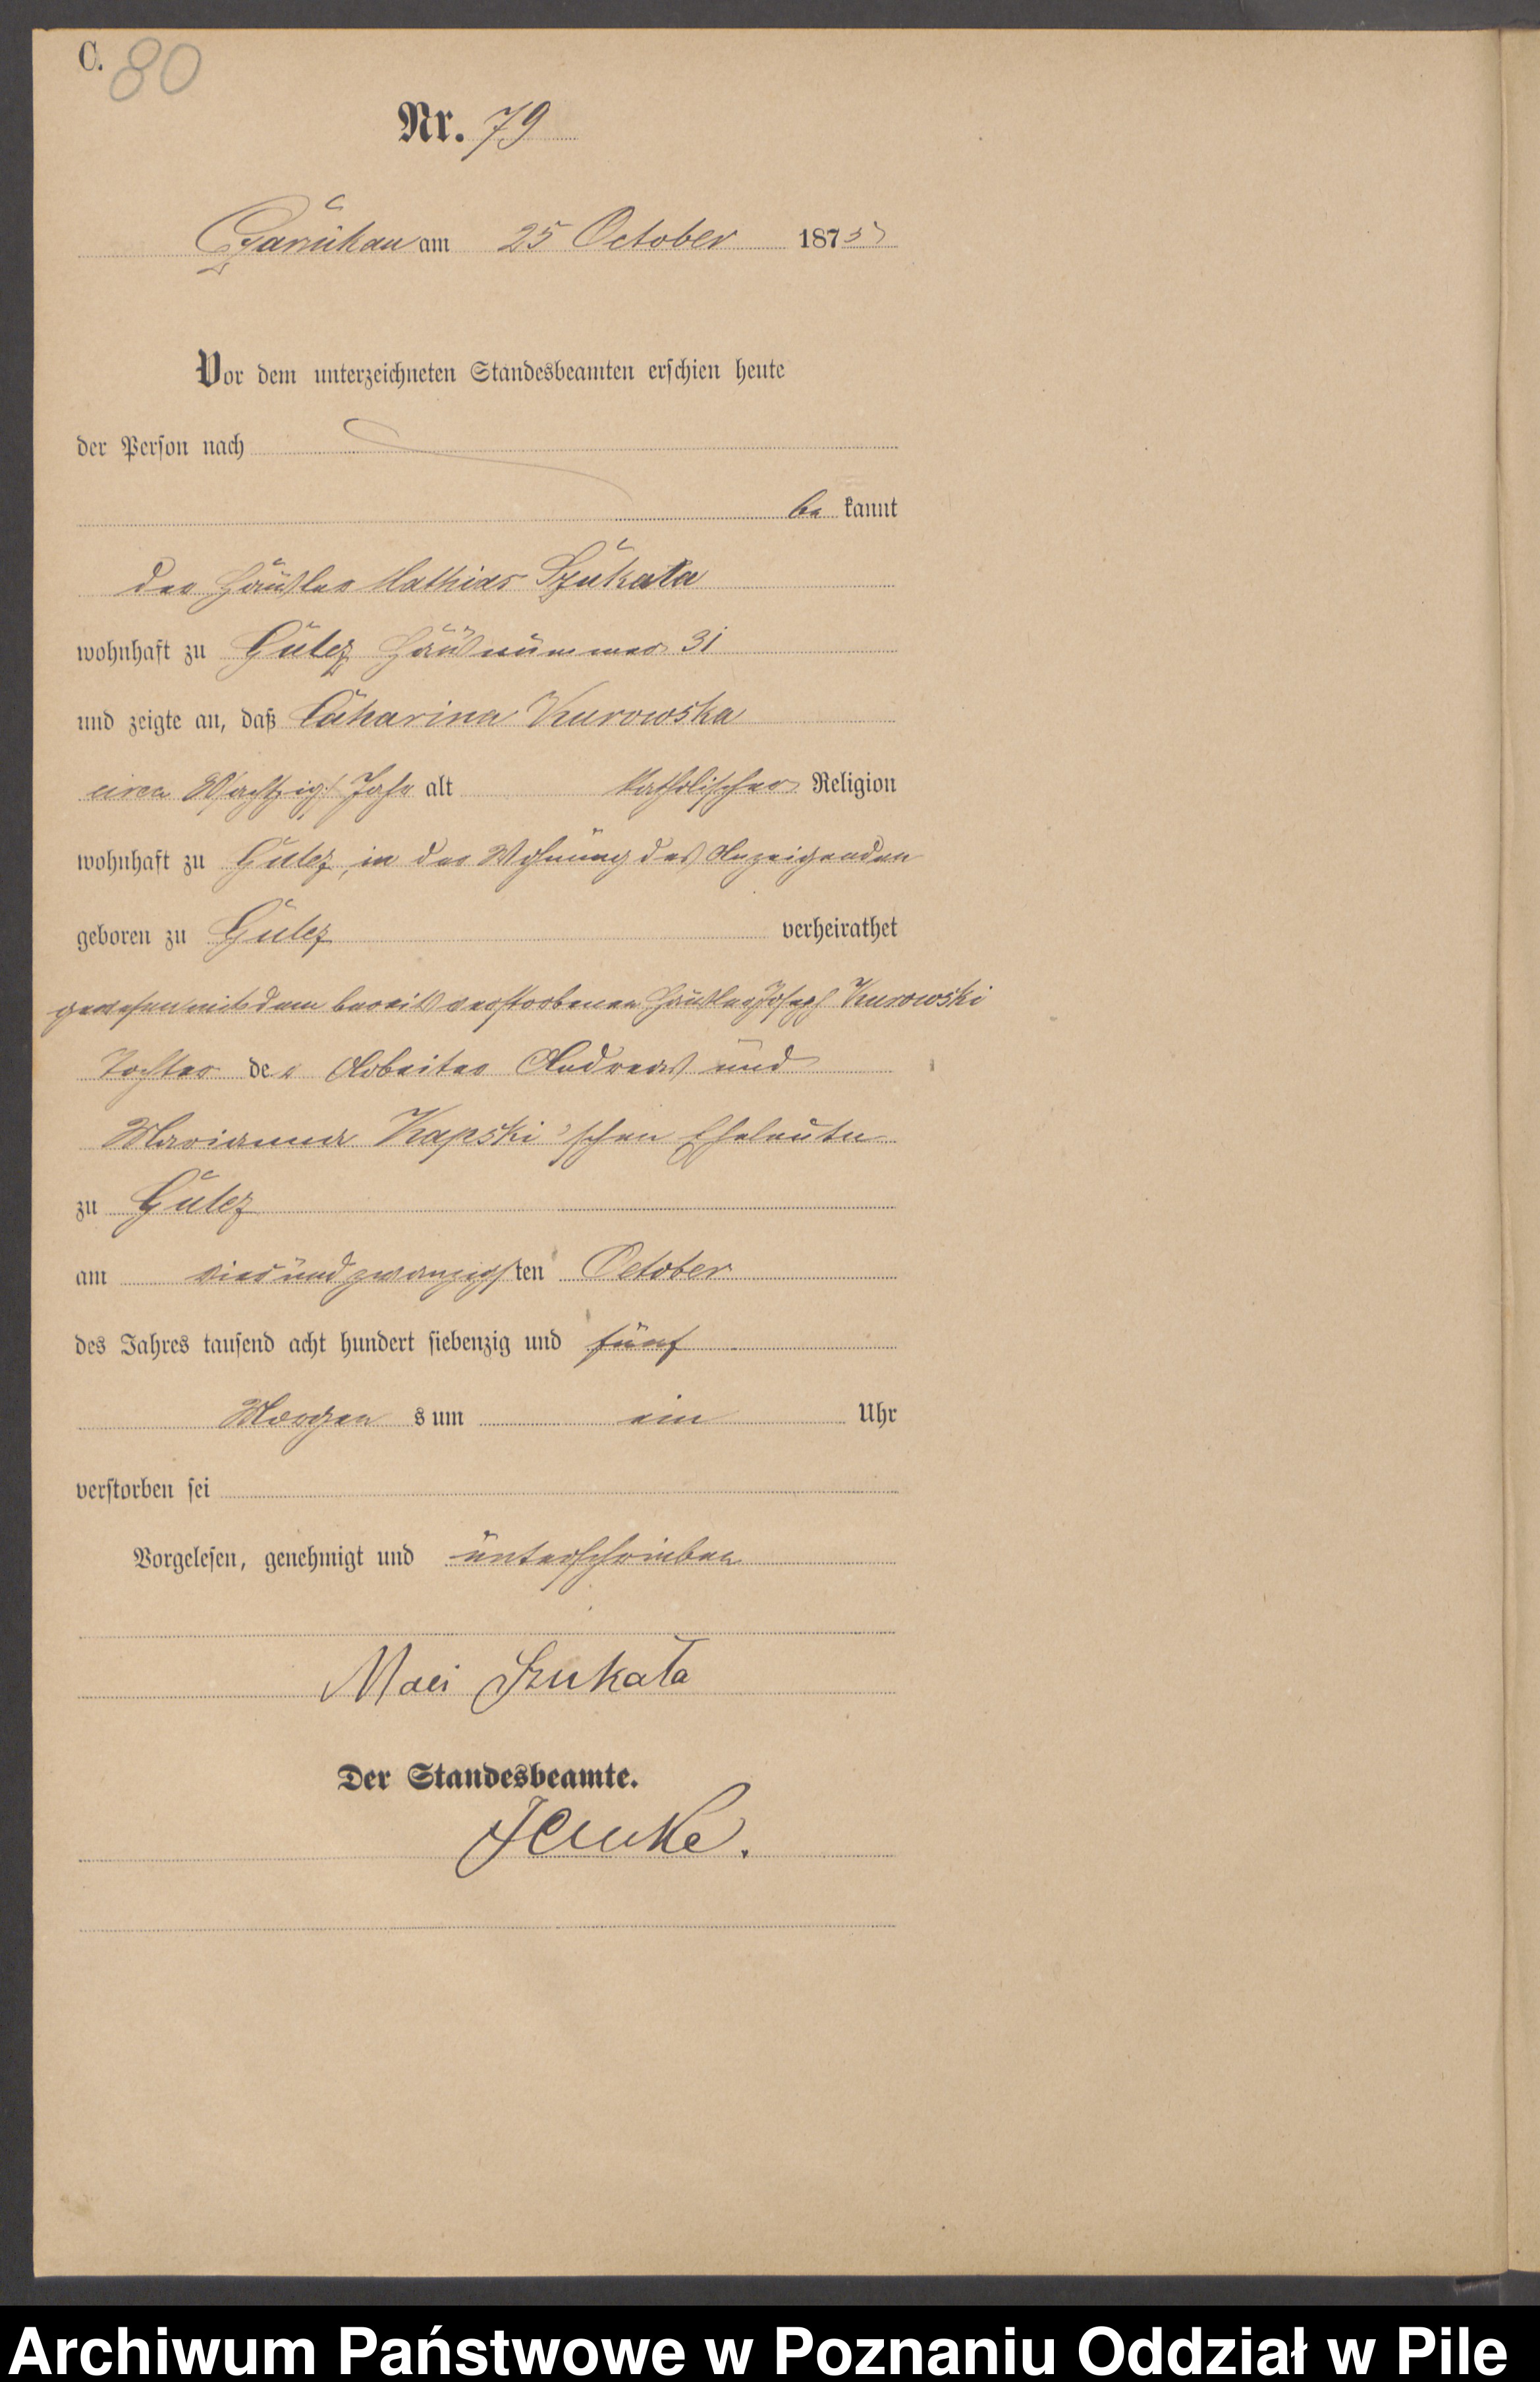 C.
80
Nr. 79
Czarnikau am 25 October 1875
Vor dem unterzeichneten Standesbeamten erschien heute
der Person nach
be kannt
der Häusler Mathias Szukała
wohnhaft zu Gulcz Hausnummer 31
und zeigte an, daß Catharina Kurowska
circa achtzig Jahr alt katholischer Religion
wohnhaft zu Gulcz, in der Wohnung des Anzeigenden
geboren zu Gulcz verheirathet
gewesen mit dem bereits verstorbenen Häusler Joseph Kurowski
Tochter der Arbeiter Andreas und
Marianna Kapski'schen Eheleute
zu Gulcz
am vier und zwanzigsten October
des Jahres tausend acht hundert siebenzig und fünf
Morgen s um ein Uhr
verstorben sei
Vorgelesen, genehmigt und unterschrieben
Maci Szukała
Der Standesbeamte.
Archiwum Państwowe w Poznaniu Oddział w Pile